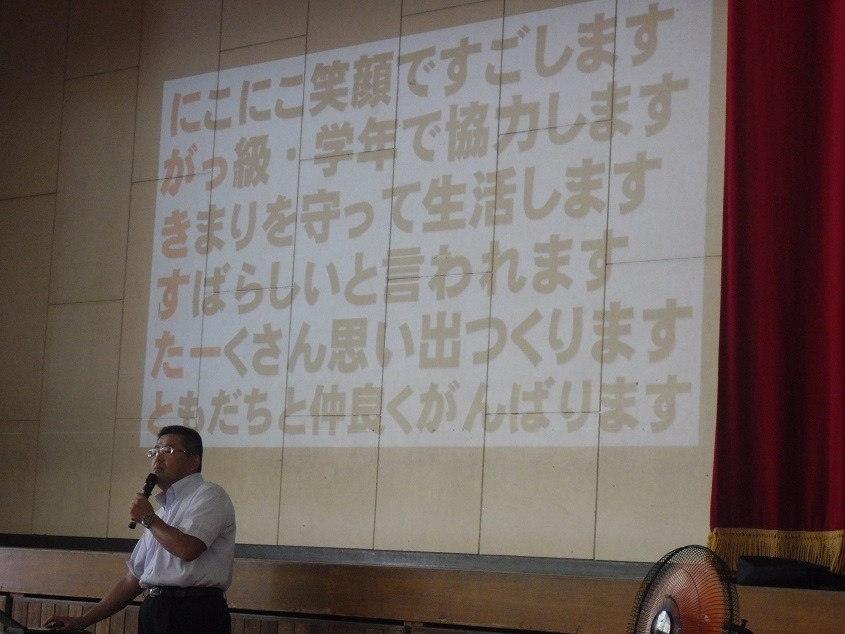 にこにこ笑顔ですごします
がっ級・学年で協力します
きまりを守って生活します
すばらしいと言われます
たーくさん思い出つくります
ともだちと仲良くがんばります